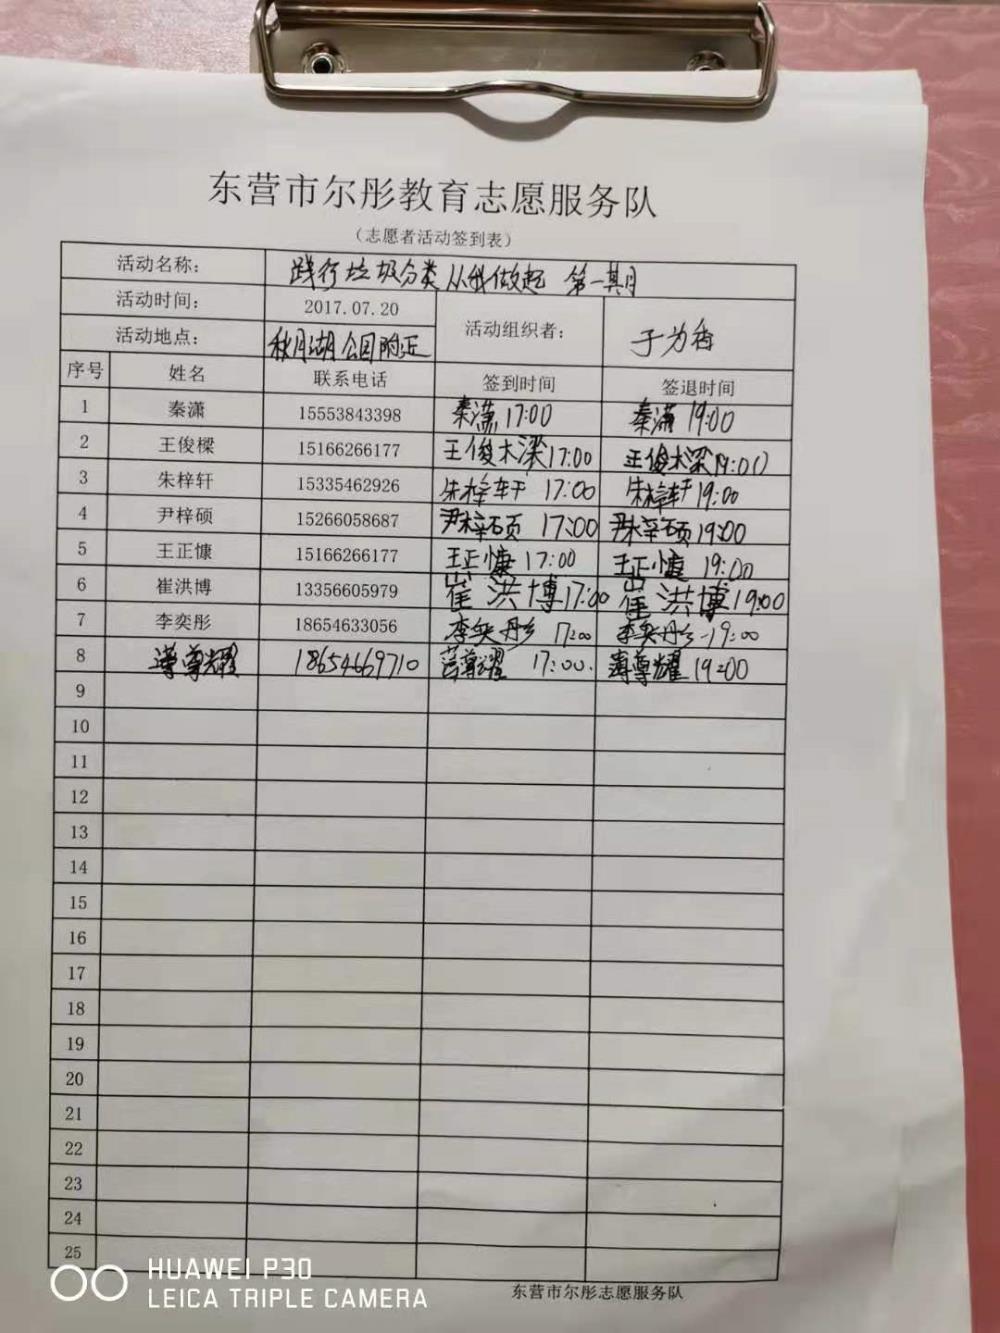 东营市尔彤教育志愿服务队
（志愿者活动签到表）
活动名称： 践行垃圾分类 从我做起 第一期
活动时间： 2017.07.20 活动组织者： 于为香
活动地点： 秋月湖公园附近
序号 姓名 联系电话 签到时间 签退时间
1 秦潇 15553843398 秦潇 17:00 秦潇 19:00
2 王俊樑 15166266177 王俊樑 17:00 王俊樑 19:00
3 朱梓轩 15335462926 朱梓轩 17:00 朱梓轩 19:00
4 尹梓硕 15266058687 尹梓硕 17:00 尹梓硕 19:00
5 王正慷 15166266177 王正慷 17:00 王正慷 19:00
6 崔洪博 13356605979 崔洪博 17:00 崔洪博 19:00
7 李奕彤 18654633056 李奕彤 17:00 李奕彤 19:00
8 尊耀 18654669710 尊耀 17:00 尊耀 19:00
9
10
11
12
13
14
15
16
17
18
19
20
21
22
23
24
25
东营市尔彤志愿服务队
HUAWEI P30
LEICA TRIPLE CAMERA